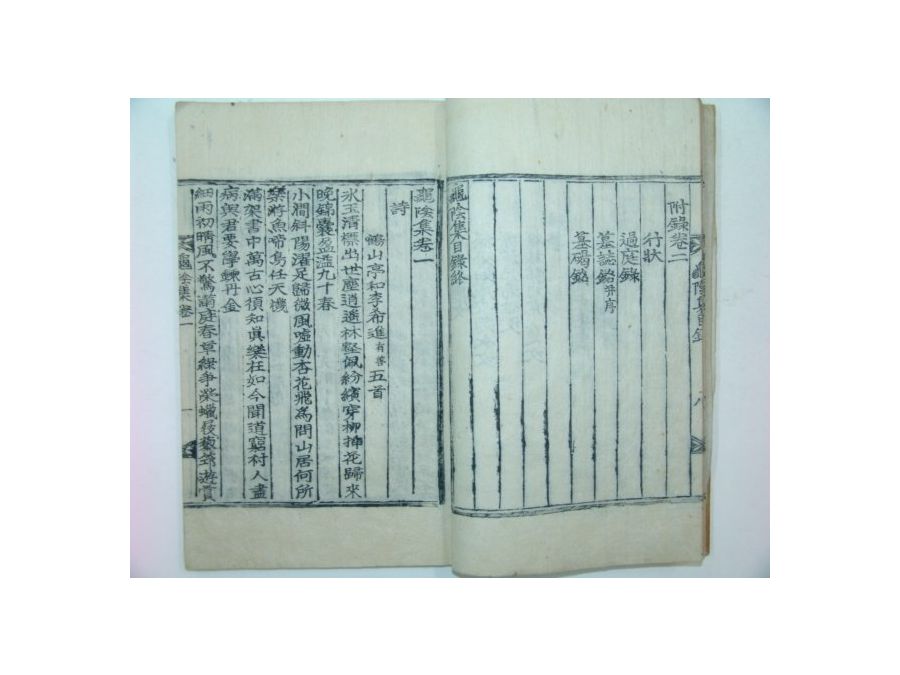 附錄卷二
行狀
過庭錄
墓誌銘并序
墓碣銘
龜陰集目錄終
龜陰集卷一
詩
鶴山亭和李希進有善五首
氷玉清標出世塵逍遙林壑佩紛繽穿柳揷花歸來
晩錦囊盈溢九十春
小澗斜陽濯足歸微風噓動杏花飛爲問山居何所
樂游魚啼鳥任天機
滿架書中萬古心須知眞樂在如今聞道窮村人盡
病與君要學鍊丹金
細雨初晴風不驚滿庭春草綠爭榮蠟屐遊賞
龜陰集卷一